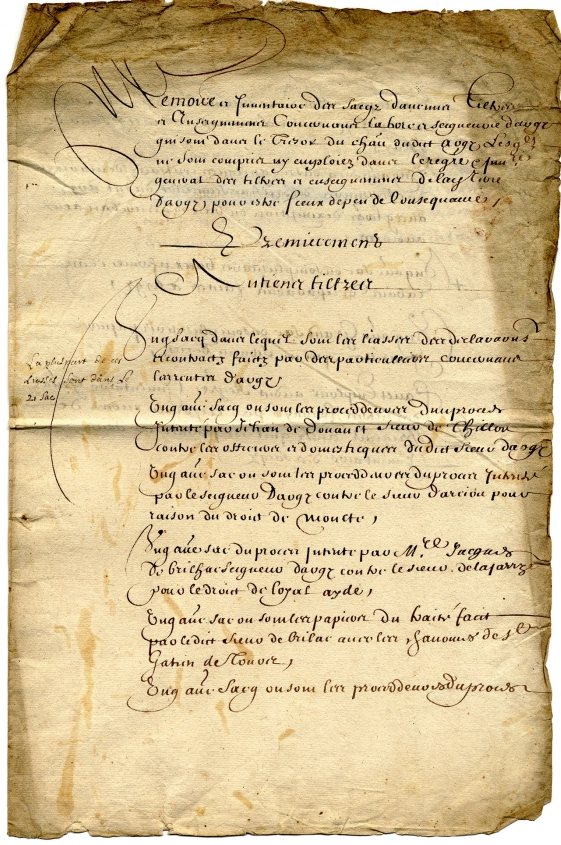 Memoire et Inventaire des sacqz d'aucuns tiltres
et Enseignemens concernans la terre et seigneurie d'augé
qui sont dans le tresor du chau dudict augé Lesqls
ne sont compris ny emploiez dans le
des tiltres et enseignemens de la
d'augé, pour estre ceux de peu de consequance,
Premierement
Antiens tiltres
Ung sacq dans lequel sont les liasses des declarations
et contractz faictz par des particulliers concernans
les rentes d'augé
La pluspart de ces
sont dans le
21 sac
Ung aue sacq ou sont les procedeures du proces
Intenté par Jehan de Douault sieur de Chillou
contre les officiers et domesticques dudict sieur d'augé
Ung aue sac ou sont les proceddures du proces Intenté
par le seigneur d'augé contre le sieur d'arcion pour
raison du droit de
Ung aue sac du proces Intenté par M.re Jacques
de brilhac seigneur d'augé contre le sieur de lajarrye
pour le droit de loyal ayde,
Ung aue sac ou sont les papiers du traité faict
par ledict sieur de brilac avec les chanoines de st
Gatien de Tours,
Ung aue sacq ou sont les proceddeures du proces